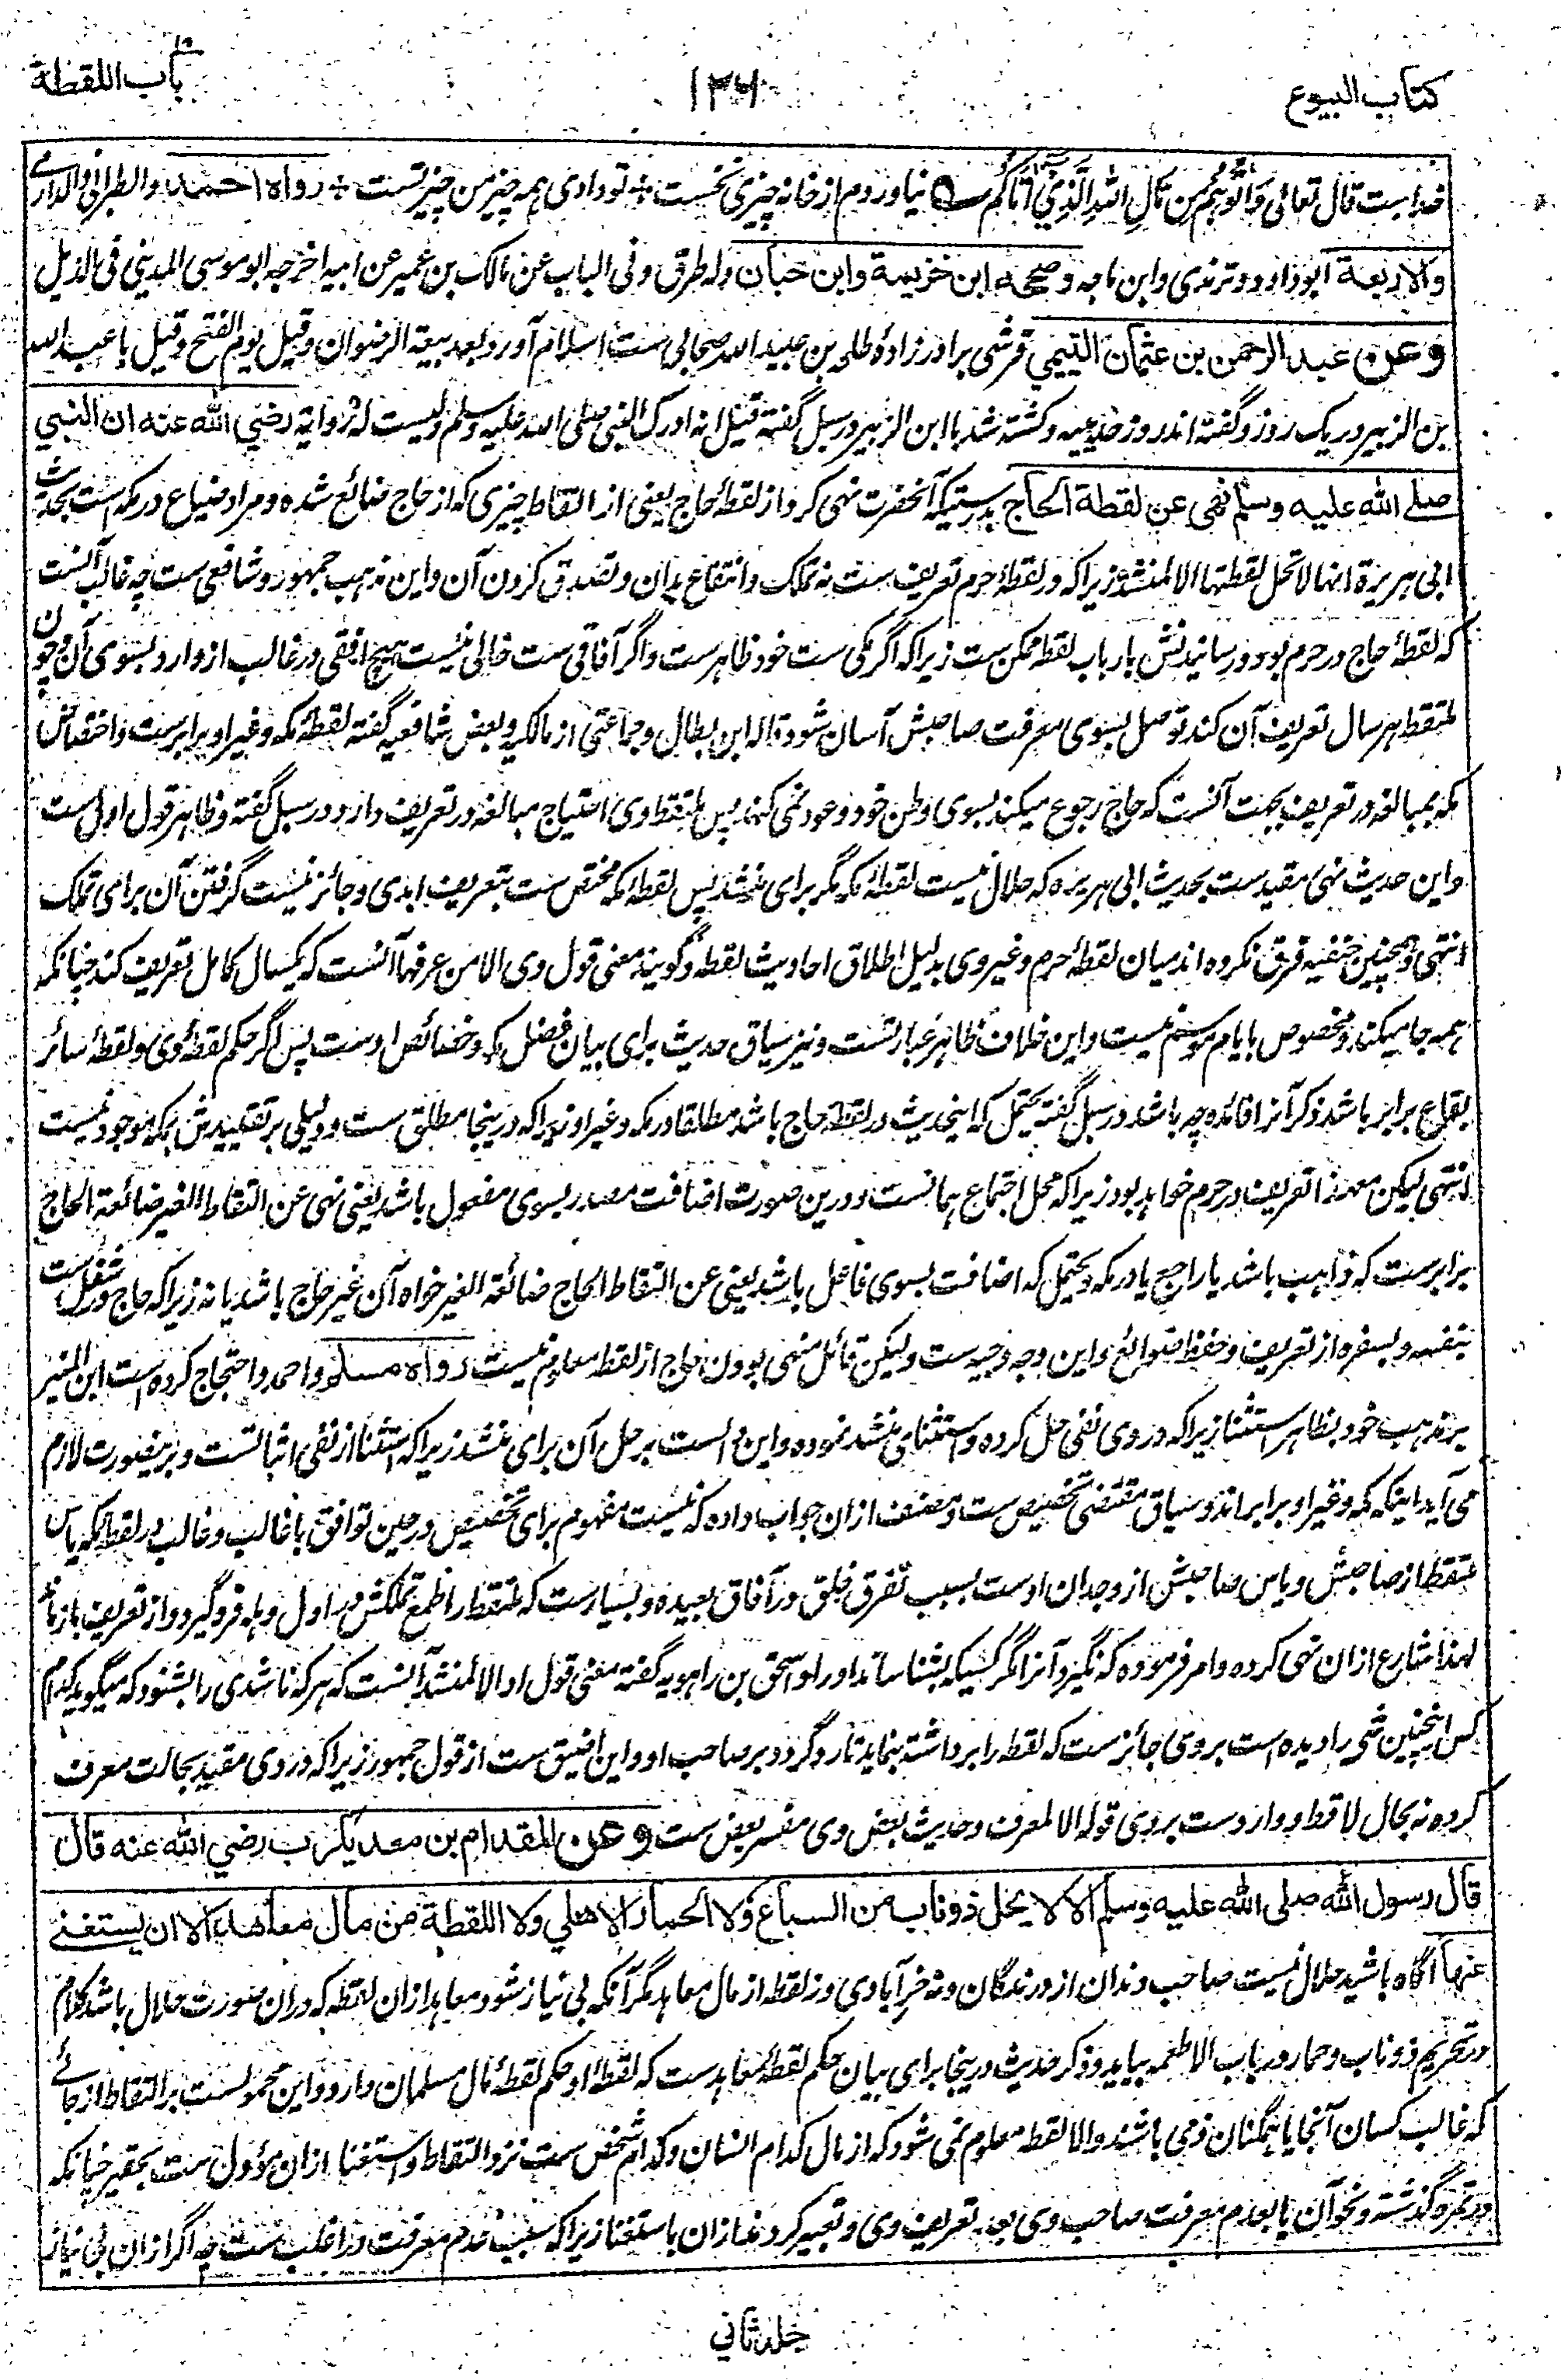 كتاب البيوع
۱۲۶
باب اللقطة
خداست قال تعالی وَآتُوهُم مِّن مَّالِ اللهِ الَّذِي آتَاكُمْ نیاوردم از خانه چیزی نخست ÷ تو دادی همه چیز من چیز تست ÷ رواه احمد والطبرانی والدارمی
والاربعة ابوداود و ترمذی وابن ماجه وصححه ابن خزيمة وابن حبان وله طرق وفی الباب عن مالک بن عمیر عن ابیه اخرجه ابو موسی المدینی فی الذیل
وعن عبد الرحمن بن عثمان التيمي قرشی برادرزادهٔ طلحه بن عبید الله صحابی ست اسلام آورد بعد بیعة الرضوان وقیل یوم الفتح وقیل با عبد الله
بن الزبیر در یک روز و گفته اند روز حدیبیه و کشته شد با ابن الزبیر در سبل گفته قیل انه ادرک النبی صلی الله علیه وسلم ولیست له روایة رضي الله عنه ان النبي
صلے الله عليه وسلم نهى عن لقطة الحاج بدرستیکه آنحضرت نهی کرد از لقطهٔ حاج یعنی از التقاط چیزی که از حاج ضائع شده و مراد ضیاع در مکه است بحدیث
ابی هریرة انها لا تحل لقطتها الا لمنشد زیراکه در لقطهٔ حرم تعریف ست نه تملک و انتفاع بدان و تصدق کردن آن و این مذهب جمهور و شافعی ست چه غالب آنست
که لقطهٔ حاج در حرم بود و رسانیدنش بارباب لقطه ممکن ست زیراکه اگر مکی ست خود ظاهرست و اگر آفاقی ست خالی نیست هیچ افقی در غالب از وارد بسوی آن و چون
ملتقط هر سال تعریف آن کند توصل بسوی معرفت صاحبش آسان شود قاله ابن بطال و جماعتی از مالکیه و بعض شافعیه گفته لقطهٔ مکه و غیر او برابرست و اختصاص
مکه بمبالغه در تعریف بجهت آنست که حاج رجوع میکند بسوی وطن خود و عود نمی کند پس ملتقط وی احتیاج مبالغه در تعریف دارد و در سبل گفته و ظاهر قول اول ست
و این حدیث نهی مقیدست بحدیث ابی هریره که حلال نیست لقطهٔ مکه مگر برای منشد پس لقطهٔ مکه مختص ست بتعریف ابدی و جائز نیست گرفتن آن برای تملک
انتهی و همچنین حنفیه فرق نکرده اند میان لقطهٔ حرم و غیر وی بدلیل اطلاق احادیث لقطه و گویند معنی قول وی الا من عرفها آنست که یکسال کامل تعریف کند چنانکه
همه جا میکند و مخصوص بایام موسم نیست و این خلاف ظاهر عبارتست و نیز سیاق حدیث برای بیان فضل مکه و خصائص اوست پس اگر حکم لقطهٔ وی و لقطهٔ سائر
بقاع برابر باشد ذکر آنرا فائده چه باشد و در سبل گفته یحتمل که این حدیث در لقطهٔ حاج باشد مطلقا در مکه و غیر او زیراکه درینجا مطلق ست و دلیلی بر تقییدش بمکه موجود نیست
انتهی لیکن معهذا تعریف در حرم خواهد بود زیراکه محل اجتماع همانست و درین صورت اضافت مصدر بسوی مفعول باشد یعنی نهی عن التقاط الغیر ضائعة الحاج
برابرست که ذاهب باشد یا راجع یا در مکه و یحتمل که اضافت بسوی فاعل باشد یعنی عن التقاط الحاج ضائعة الغیر خواه آن غیر حاج باشد یا نه زیراکه حاج در شغل ست
بنفسه و بسفره از تعریف و حفظ ضوائع و این وجه وجیه ست ولیکن قائل منهی بودن حاج از لقطه معلوم نیست رواه مسلم و احمد و احتجاج کرده است ابن المنیر
بر مذهب خود بظاهر استثنا زیراکه در وی نفی حل کرده و استثنای منشد نموده و این دال ست بر حل آن برای منشد زیراکه استثنا از نفی اثباتست و برینصورت لازم
می آید اینکه مکه و غیر او برابر اند و سیاق مقتضی تخصیص ست و مصنف ازان جواب داده که نیست مفهوم برای تخصیص در حین توافق با غالب و غالب در لقطهٔ مکه یاس
ملتقط از صاحبش و یاس صاحبش از وجدان اوست بسبب تفرق خلق در آفاق بعیده و بسیارست که ملتقط را طمع تملکش در اول وهله فرو گیرد و از تعریف باز ماند
لهذا شارع ازان نهی کرده و امر فرموده که نگیرد آنرا مگر کسیکه بشناساند او را و اسحق بن راهویه گفته معنی قول او الا لمنشد آنست که هر که ناشدی را بشنود که میگوید کدام
کس اینچنین شی را دیده است بروی جائزست که لقطه را برداشته بنماید تا رد گردد بر صاحب او و این اضیق ست از قول جمهور زیراکه در وی مقید بحالت معرف
کرده نه بحال لاقط و واردست بروی قوله الا لمعرف و حدیث بعض وی مفسر بعض ست وعن المقدام بن معد يكرب رضي الله عنه قال
قال رسول الله صلى الله عليه وسلم الا لا يحل ذو ناب من السباع ولا الحمار الاهلي ولا اللقطة من مال معاهد الا ان يستغنے
عنها آگاه باشید حلال نیست صاحب دندان از درندگان و نه خر آبادی و نه لقطه از مال معاهد مگر آنکه بی نیاز شود معاهد ازان لقطه که دران صورت حلال باشد کلام
در تحریم ذو ناب و حمار در باب الاطعمه بیاید و ذکر حدیث درینجا برای بیان حکم لقطهٔ معاهدست که لقطهٔ او حکم لقطهٔ مال مسلمان دارد و این محمولست بر التقاط از جائے
که غالب کسان آنجا یا همگنان ذمی باشند و الا لقطه معلوم نمی شود که از مال کدام انسان و کدام شخص ست نزد التقاط و استغنا ازان مؤول ست بحقیر چنانکه
در تمره گذشته و نحو آن یا بعدم معرفت صاحب وی بعد تعریف وی و تعبیر کرد ازان باستغنا زیراکه سبب عدم معرفت در اغلب ست چه اگر ازان بی نیاز
جلد ثانی